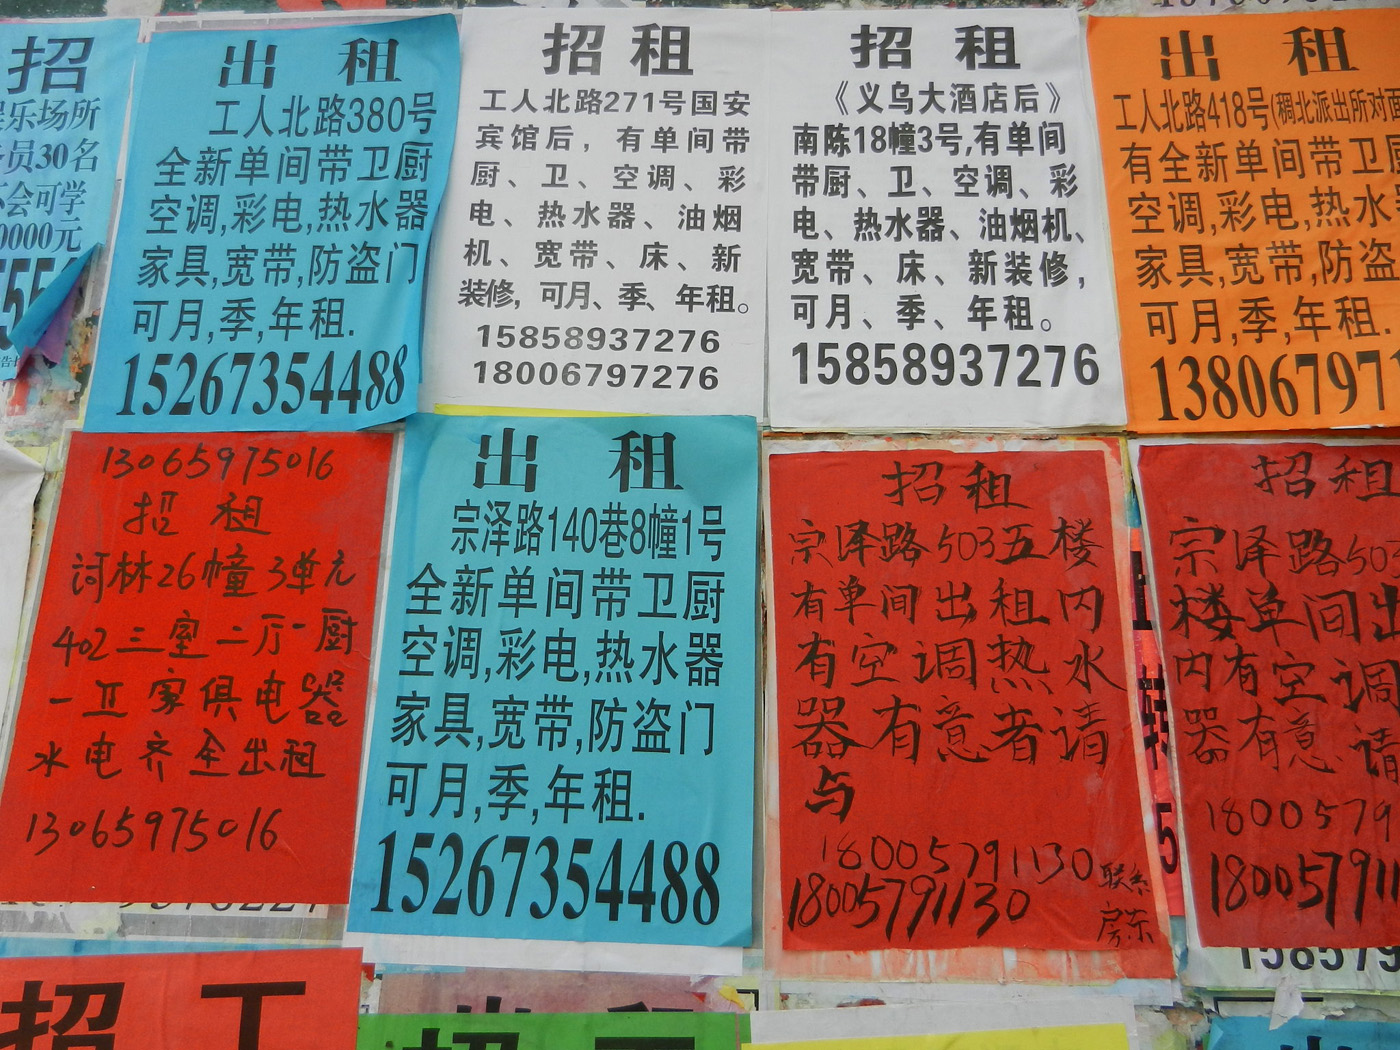 招
乐场所
员30名
会可学
0000元
出 租
工人北路380号
全新单间带卫厨
空调,彩电,热水器
家具,宽带,防盗门
可月,季,年租.
15267354488
招租
工人北路271号国安
宾馆后，有单间带
厨、卫、空调、彩
电、热水器、油烟
机、宽带、床、新
装修，可月、季、年租。
15858937276
18006797276
招 租
《义乌大酒店后》
南陈18幢3号,有单间
带厨、卫、空调、彩
电、热水器、油烟机、
宽带、床、新装修，
可月、季、年租。
15858937276
出 租
工人北路418号(稠北派出所对面
有全新单间带卫厨
空调,彩电,热水
家具,宽带,防盗
可月,季,年租.
138067971
13065975016
招 租
词林26幢3单元
402三室二厅一厨
一卫家俱电器
水电齐全出租
13065975016
出 租
宗泽路140巷8幢1号
全新单间带卫厨
空调,彩电,热水器
家具,宽带,防盗门
可月,季,年租.
15267354488
招租
宗泽路503五楼
有单间出租内
有空调热水
器有意者请
与
18005791130联系
18005791130房东
招租
宗泽路503
楼单间出
内有空调
器有意请
1800579
180057911
5
招工